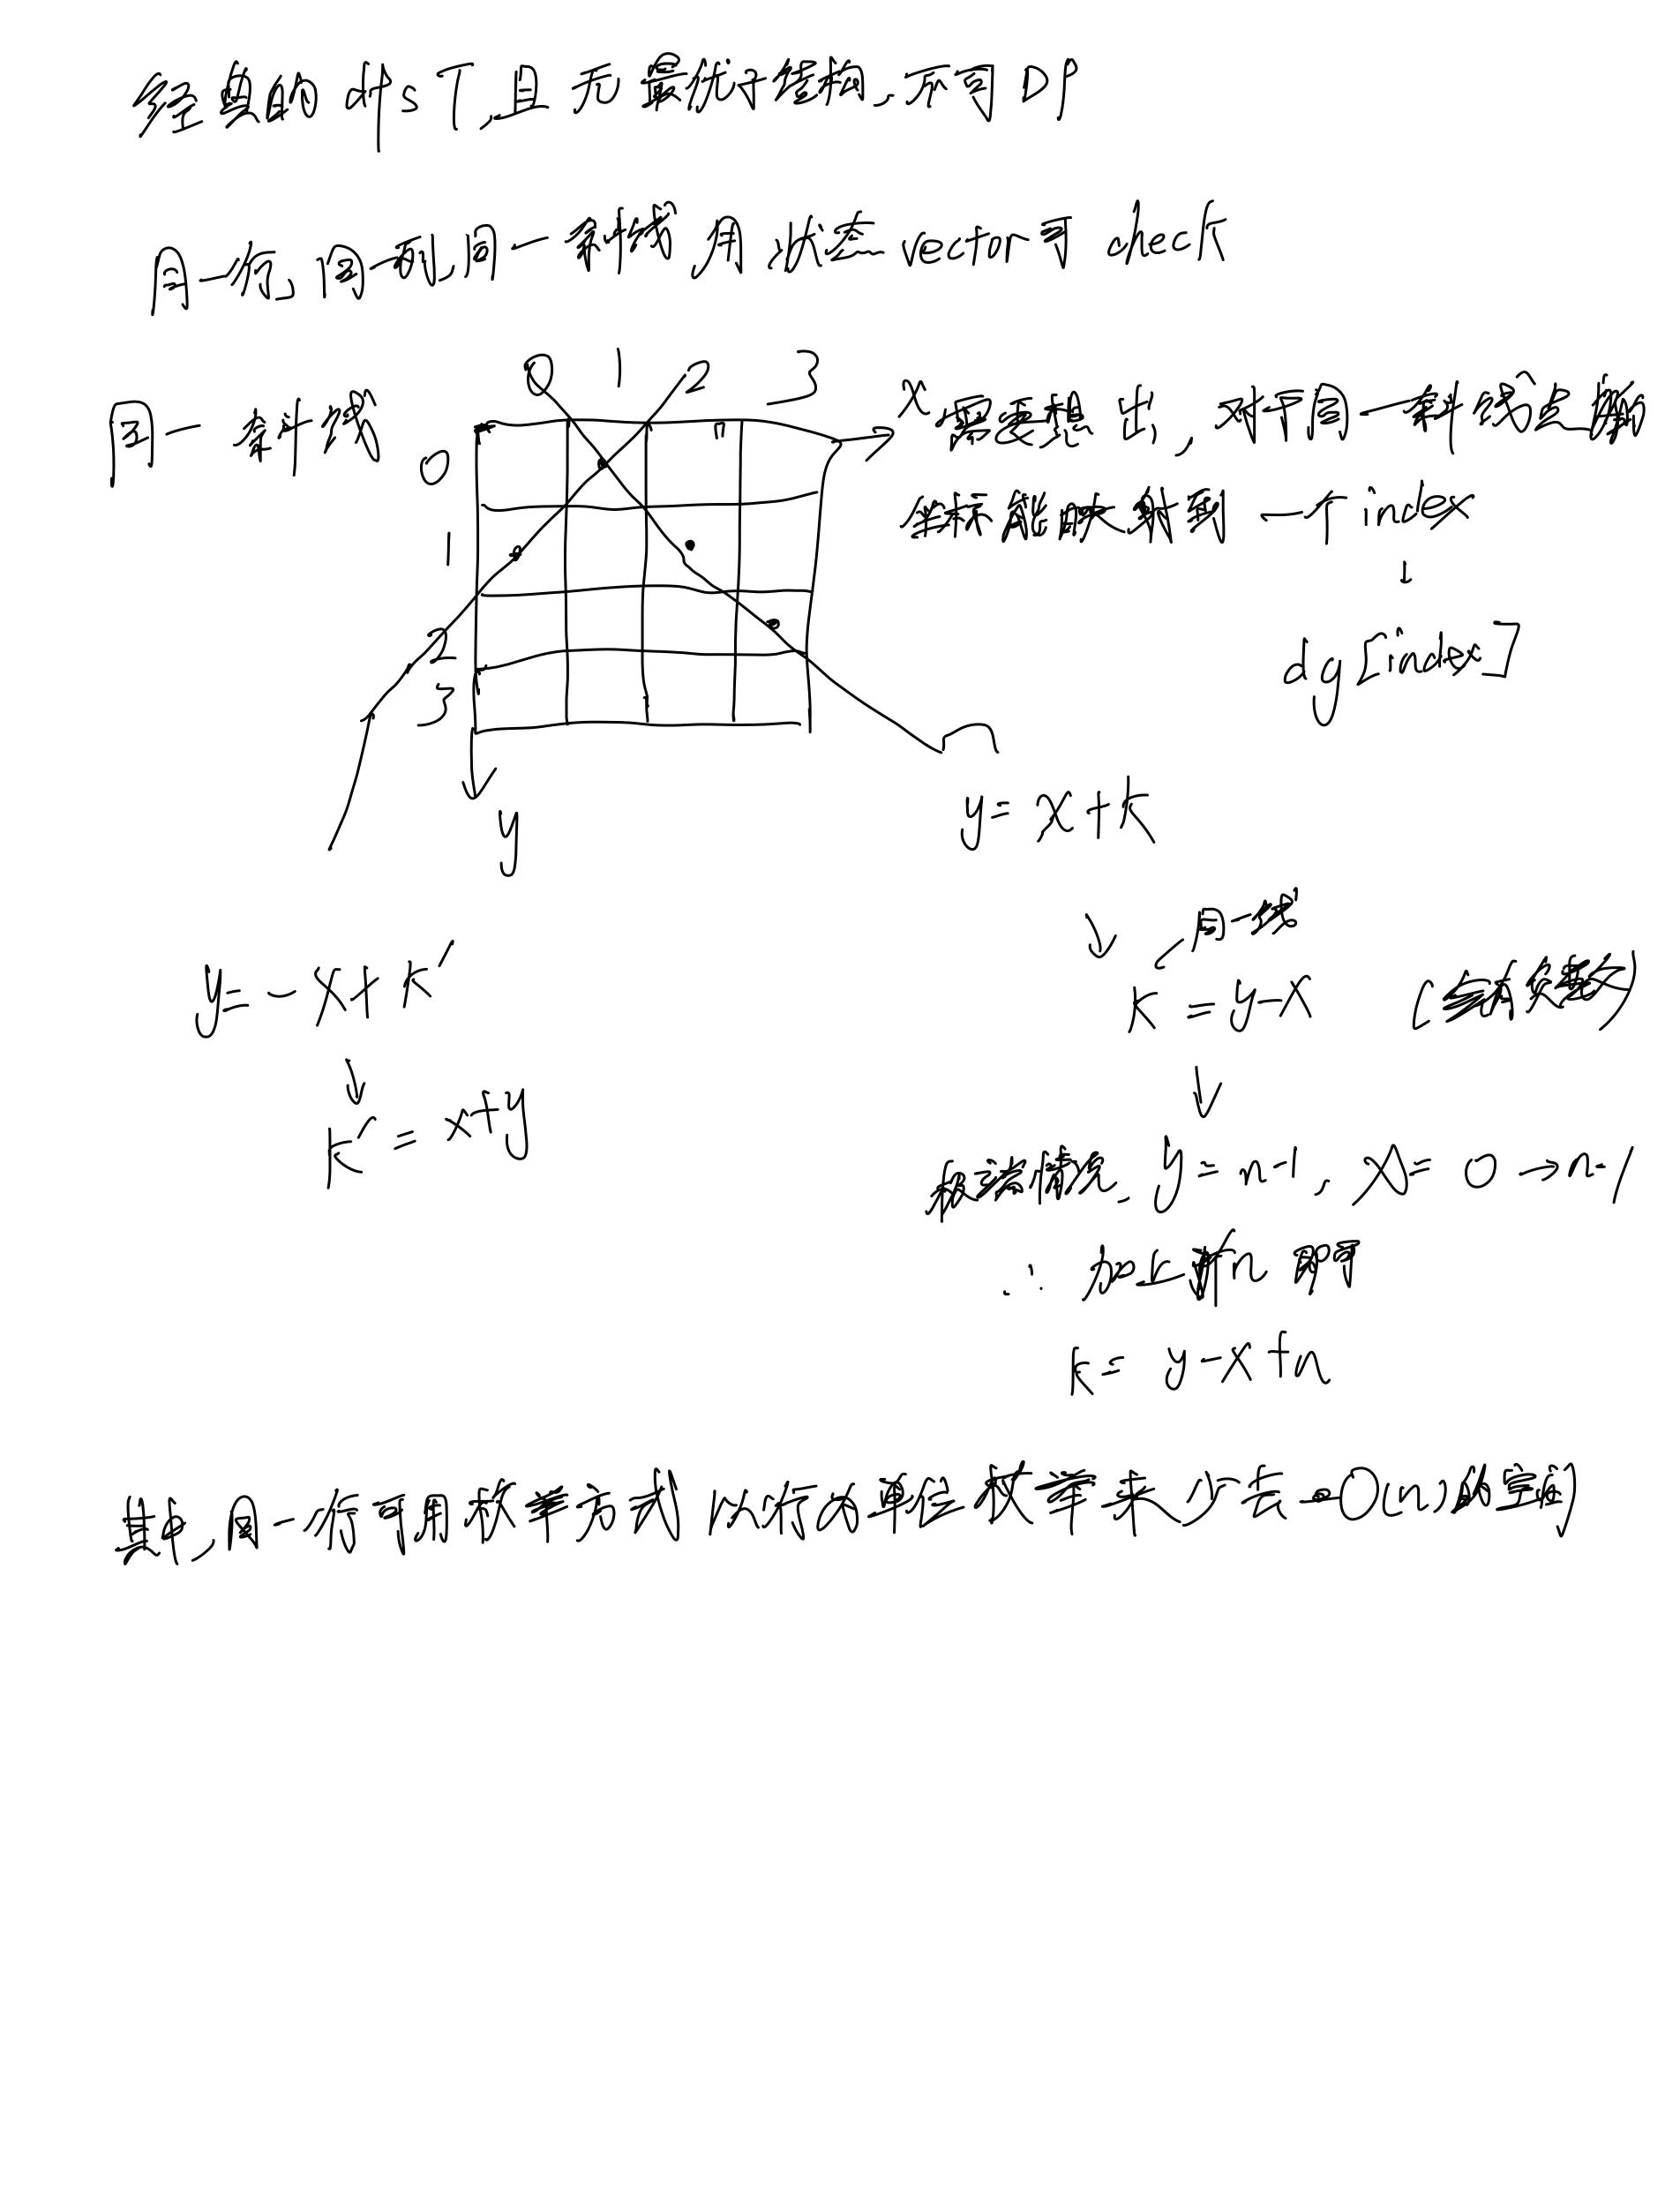 经典的dfsT,且无最优子结构,不可DP
同一行,同一列,同一条斜线 用状态vector可check
同一斜线
0 1 2 3
x
需要想出,对于同一斜线上
坐标能映射到一个index
↓
dg[index]
0
1
2
3
y
y=x+k
↓ 同一线
k=y-x (会有负数)
↓
y=-x+k′
↓
k′=x+y
极端情况,y=n-1, x=0→n-1
∴ 加上n即可
k=y-x+n
其中,同一行可用枚举方式以行为单位枚举来少去O(n)的空间